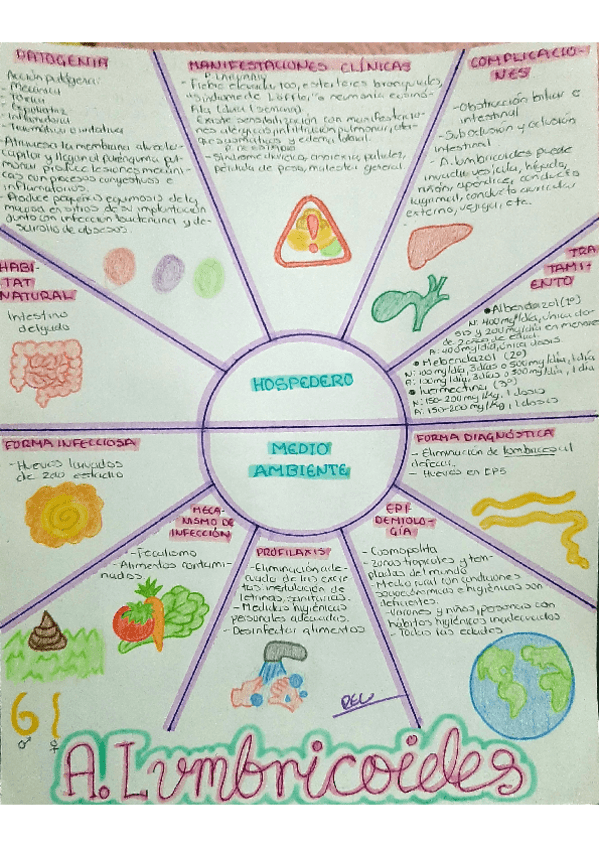 PATOGENIA
Acción patógena:
- Mecánica
- Tóxica
- Expoliatriz
- Inflamatoria
- Traumática o irritativa
- Atraviesa la membrana alveolo-
capilar y llegan al parénquima pul-
monar produce lesiones mecáni-
cas con procesos congestivos e
inflamatorios.
- Produce pequeñas equimosis de la
mucosa en sitios de su implantación
junto con infección bacteriana y de-
sarrollo de abscesos.
MANIFESTACIONES CLÍNICAS
P. LARVARIO
- Fiebre elevada, tos, estertores bronquiales,
"síndrome Löffler" o neumonía eosinó-
fila (dura 1 semana).
Existe sensibilización con manifestacio-
nes alérgicas, infiltración pulmonar,
asmatiformes y edema labial.
P. INTESTINO
- Síndrome diarreico, anorexia, palidez,
pérdida de peso, malestar general.
COMPLICACIO-
NES
- Obstrucción biliar e
intestinal
- Suboclusión y oclusión
intestinal
- A. lumbricoides puede
invadir vesícula, hígado,
riñón, apéndice, conducto
lagrimal, conducto auricular
externo, vejiga, etc.
HABI-
TAT
NATURAL
Intestino
delgado
TRA
TAMI-
ENTO
• Albendazol (1º)
N: 400 mg/día, única do-
sis y 200 mg/día en menores
de 2 años de edad
A: 400 mg/día, única dosis
• Mebendazol (2º)
N: 100 mg/día, 3 días o 500 mg/día, 1 día
A: 100 mg/día, 3 días o 500 mg/día, 1 día
• Ivermectina (3º)
N: 150-200 mg/kg, 1 dosis
A: 150-200 mg/kg, 1 dosis
HOSPEDERO
MEDIO
AMBIENTE
FORMA INFECCIOSA
- Huevos larvados
de 2do estadio
FORMA DIAGNÓSTICA
- Eliminación de lombrices al
defecar.
- Huevos en CPS
MECA-
NISMO DE
INFECCIÓN
- Fecalismo
- Alimentos contami-
nados
PROFILAXIS
- Eliminación ade-
cuada de las excre-
tas, instalación de
letrinas, sanitarias.
- Medidas higiénicas
personales adecuadas.
- Desinfectar alimentos
EPI
DEMIOLO-
GÍA
- Cosmopolita
- Zonas tropicales y tem-
pladas del mundo
- Medio rural con condiciones
socioeconómicas e higiénicas son
deficientes.
- Varones y niños, personas con
hábitos higiénicos inadecuados
- Todas las edades
♂ ♀
A. Lumbricoides